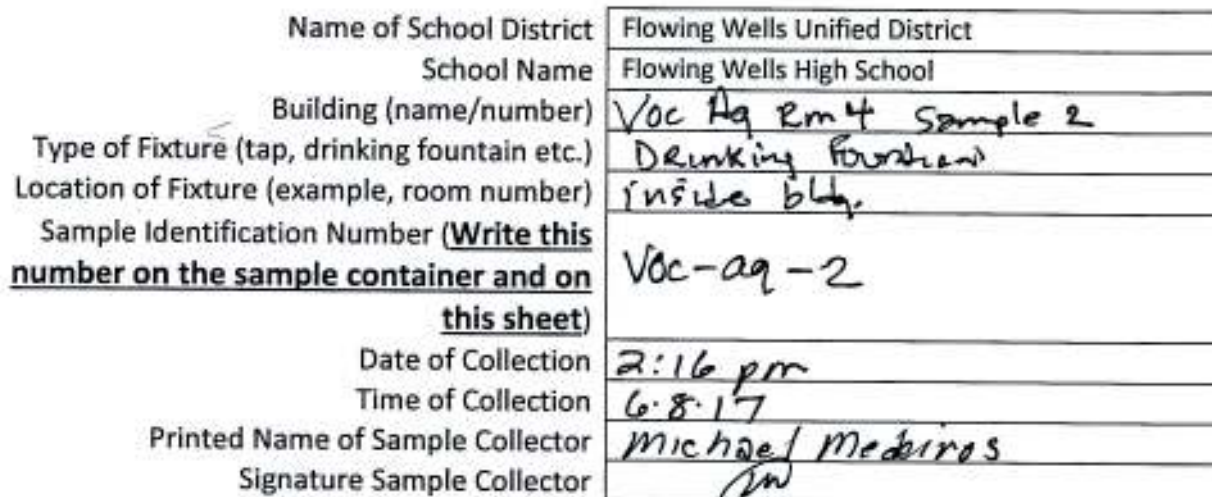 Name of School District Flowing Wells Unified District
School Name Flowing Wells High School
Building (name/number) Voc Ag Rm 4 Sample 2
Type of Fixture (tap, drinking fountain etc.) Drinking Fountain
Location of Fixture (example, room number) inside bldg.
Sample Identification Number (Write this
number on the sample container and on
this sheet) Voc-ag-2
Date of Collection 2:16 pm
Time of Collection 6.8.17
Printed Name of Sample Collector Michael Medeiros
Signature Sample Collector